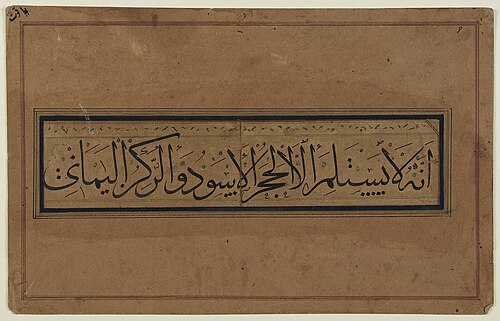 انه لا يستلم الا الحجر الاسود والركن اليماني